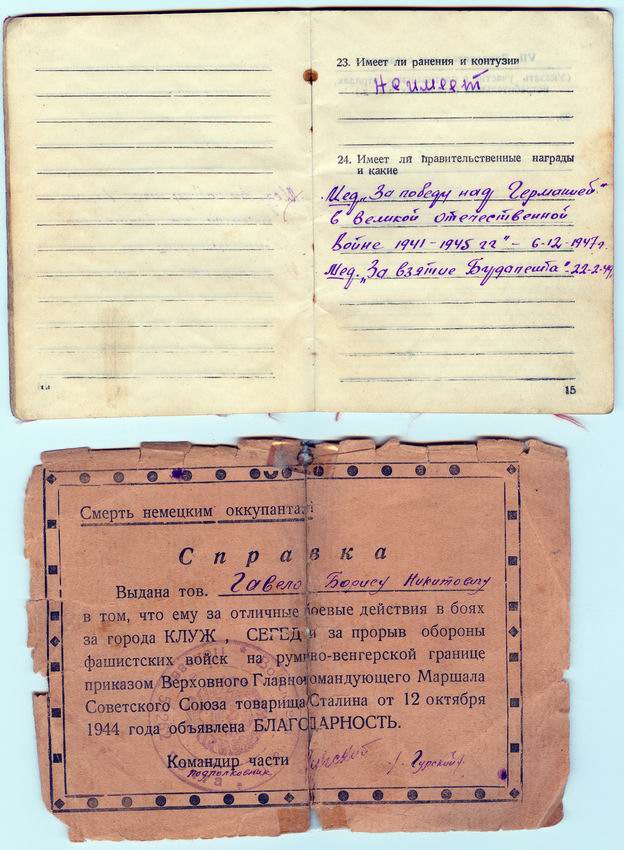 23. Имеет ли ранения и контузии
Не имеет
24. Имеет ли правительственные награды
и какие
Мед. „За победу над Германией"
в Великой отечественной
Войне 1941-1945 гг" - 6-12-1947г.
Мед. „За взятие Будапешта"-22-2-
15
Смерть немецким оккупантам!
Справка
Выдана тов. Гавело Борису Никитовичу
в том, что ему за отличные боевые действия в боях
за города КЛУЖ, СЕГЕД и за прорыв обороны
фашистских войск на румыно-венгерской границе
приказом Верховного Главнокомандующего Маршала
Советского Союза товарища Сталина от 12 октября
1944 года объявлена БЛАГОДАРНОСТЬ.
Командир части
подполковник
/Гурский/.